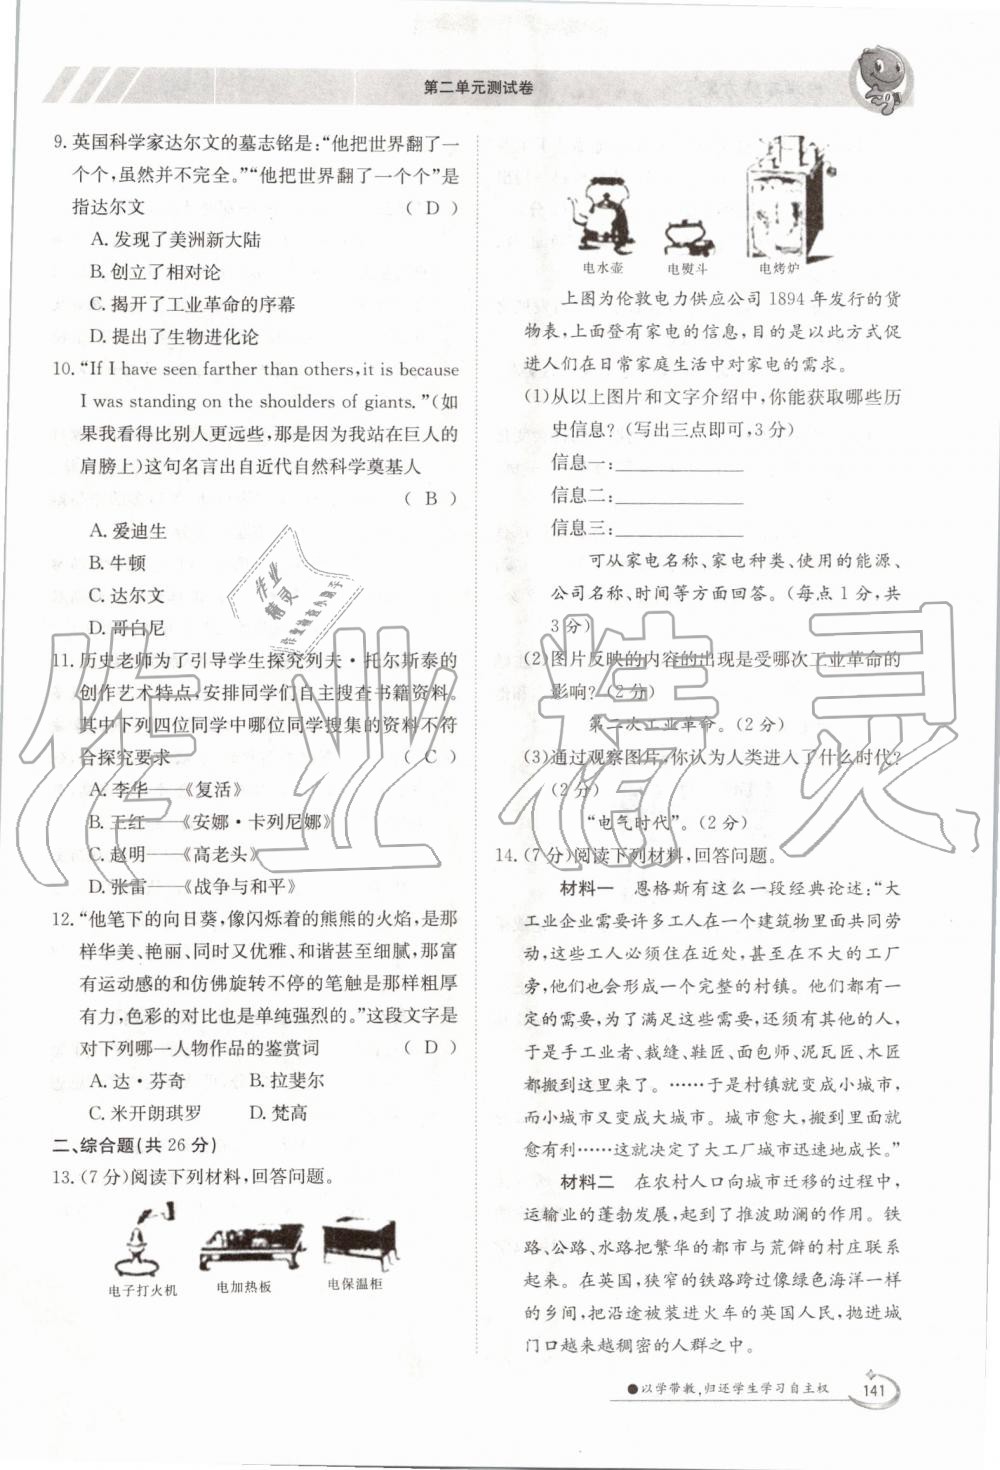 第二单元测试卷
9. 英国科学家达尔文的墓志铭是:“他把世界翻了一
个个,虽然并不完全。”“他把世界翻了一个个”是
指达尔文 ( D )
A. 发现了美洲新大陆
B. 创立了相对论
C. 揭开了工业革命的序幕
D. 提出了生物进化论
10. “If I have seen farther than others,it is because
I was standing on the shoulders of giants.”(如
果我看得比别人更远些,那是因为我站在巨人的
肩膀上)这句名言出自近代自然科学奠基人
( B )
A. 爱迪生
B. 牛顿
C. 达尔文
D. 哥白尼
11. 历史老师为了引导学生探究列夫·托尔斯泰的
创作艺术特点,安排同学们自主搜查书籍资料。
其中下列四位同学中哪位同学搜集的资料不符
合探究要求 ( C )
A. 李华——《复活》
B. 王红——《安娜·卡列尼娜》
C. 赵明——《高老头》
D. 张雷——《战争与和平》
12. “他笔下的向日葵,像闪烁着的熊熊的火焰,是那
样华美、艳丽,同时又优雅、和谐甚至细腻,那富
有运动感的和仿佛旋转不停的笔触是那样粗厚
有力,色彩的对比也是单纯强烈的。”这段文字是
对下列哪一人物作品的鉴赏词 ( D )
A. 达·芬奇 B. 拉斐尔
C. 米开朗琪罗 D. 梵高
二、综合题(共 26 分)
13. (7 分)阅读下列材料,回答问题。
电子打火机 电加热板 电保温柜
电水壶 电熨斗 电烤炉
上图为伦敦电力供应公司 1894 年发行的货
物表,上面登有家电的信息,目的是以此方式促
进人们在日常家庭生活中对家电的需求。
(1)从以上图片和文字介绍中,你能获取哪些历
史信息?(写出三点即可,3 分)
信息一:
信息二:
信息三:
可从家电名称、家电种类、使用的能源、
公司名称、时间等方面回答。(每点 1 分,共
3 分)
(2)图片反映的内容的出现是受哪次工业革命的
影响?(2 分)
第二次工业革命。(2 分)
(3)通过观察图片,你认为人类进入了什么时代?
(2 分)
“电气时代”。(2 分)
14. (7 分)阅读下列材料,回答问题。
材料一 恩格斯有这么一段经典论述:“大
工业企业需要许多工人在一个建筑物里面共同劳
动,这些工人必须住在近处,甚至在不大的工厂
旁,他们也会形成一个完整的村镇。他们都有一
定的需要,为了满足这些需要,还须有其他的人,
于是手工业者、裁缝、鞋匠、面包师、泥瓦匠、木匠
都搬到这里来了。……于是村镇就变成小城市,
而小城市又变成大城市。城市愈大,搬到里面就
愈有利……这就决定了大工厂城市迅速地成长。”
材料二 在农村人口向城市迁移的过程中,
运输业的蓬勃发展,起到了推波助澜的作用。铁
路、公路、水路把繁华的都市与荒僻的村庄联系
起来。在英国,狭窄的铁路跨过像绿色海洋一样
的乡间,把沿途被装进火车的英国人民,抛进城
门口越来越稠密的人群之中。
●以学带教,归还学生学习自主权 141
作业精灵
作业
精灵